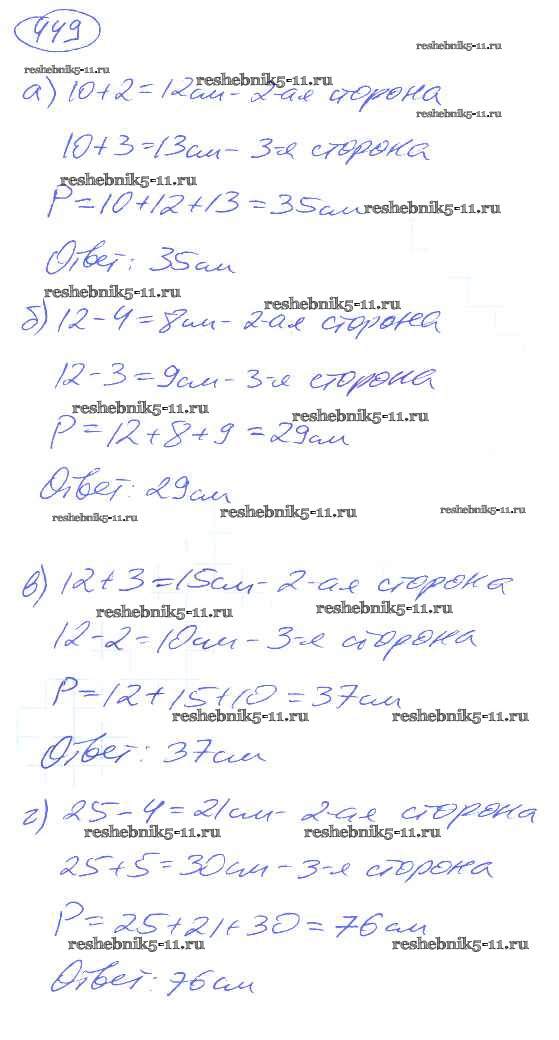 449
reshebnik5-11.ru
reshebnik5-11.ru
reshebnik5-11.ru
а) 10+2=12см- 2-ая сторона
reshebnik5-11.ru
10+3=13см- 3-я сторона
reshebnik5-11.ru
P=10+12+13=35см
reshebnik5-11.ru
Ответ: 35см
reshebnik5-11.ru
reshebnik5-11.ru
б) 12-4=8см- 2-ая сторона
12-3=9см-3-я сторона
reshebnik5-11.ru
reshebnik5-11.ru
P=12+8+9=29см
Ответ: 29см
reshebnik5-11.ru
reshebnik5-11.ru
reshebnik5-11.ru
в) 12+3=15см- 2-ая сторона
reshebnik5-11.ru
reshebnik5-11.ru
12-2=10см-3-я сторона
P=12+15+10=37см
reshebnik5-11.ru
reshebnik5-11.ru
Ответ: 37см
г) 25-4=21см- 2-ая сторона
reshebnik5-11.ru
reshebnik5-11.ru
25+5=30см-3-я сторона
P=25+21+30=76см
reshebnik5-11.ru
reshebnik5-11.ru
Ответ: 76см